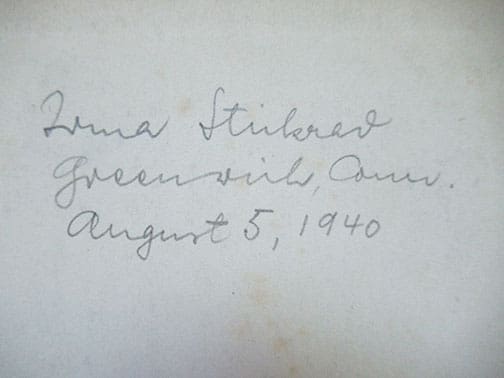 Irma Stickrad
Greenwich, Conn.
August 5, 1940